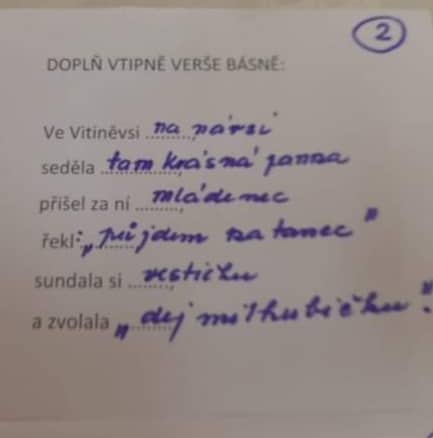 2
DOPLŇ VTIPNĚ VERŠE BÁSNĚ:
Ve Vitiněvsi ........, na návsi
seděla ........, tam krásná panna
přišel za ní ........, mládenec
řekl: „půjdem na tanec"
sundala si ........, vestičku
a zvolala „ ........ dej mi hubičku".